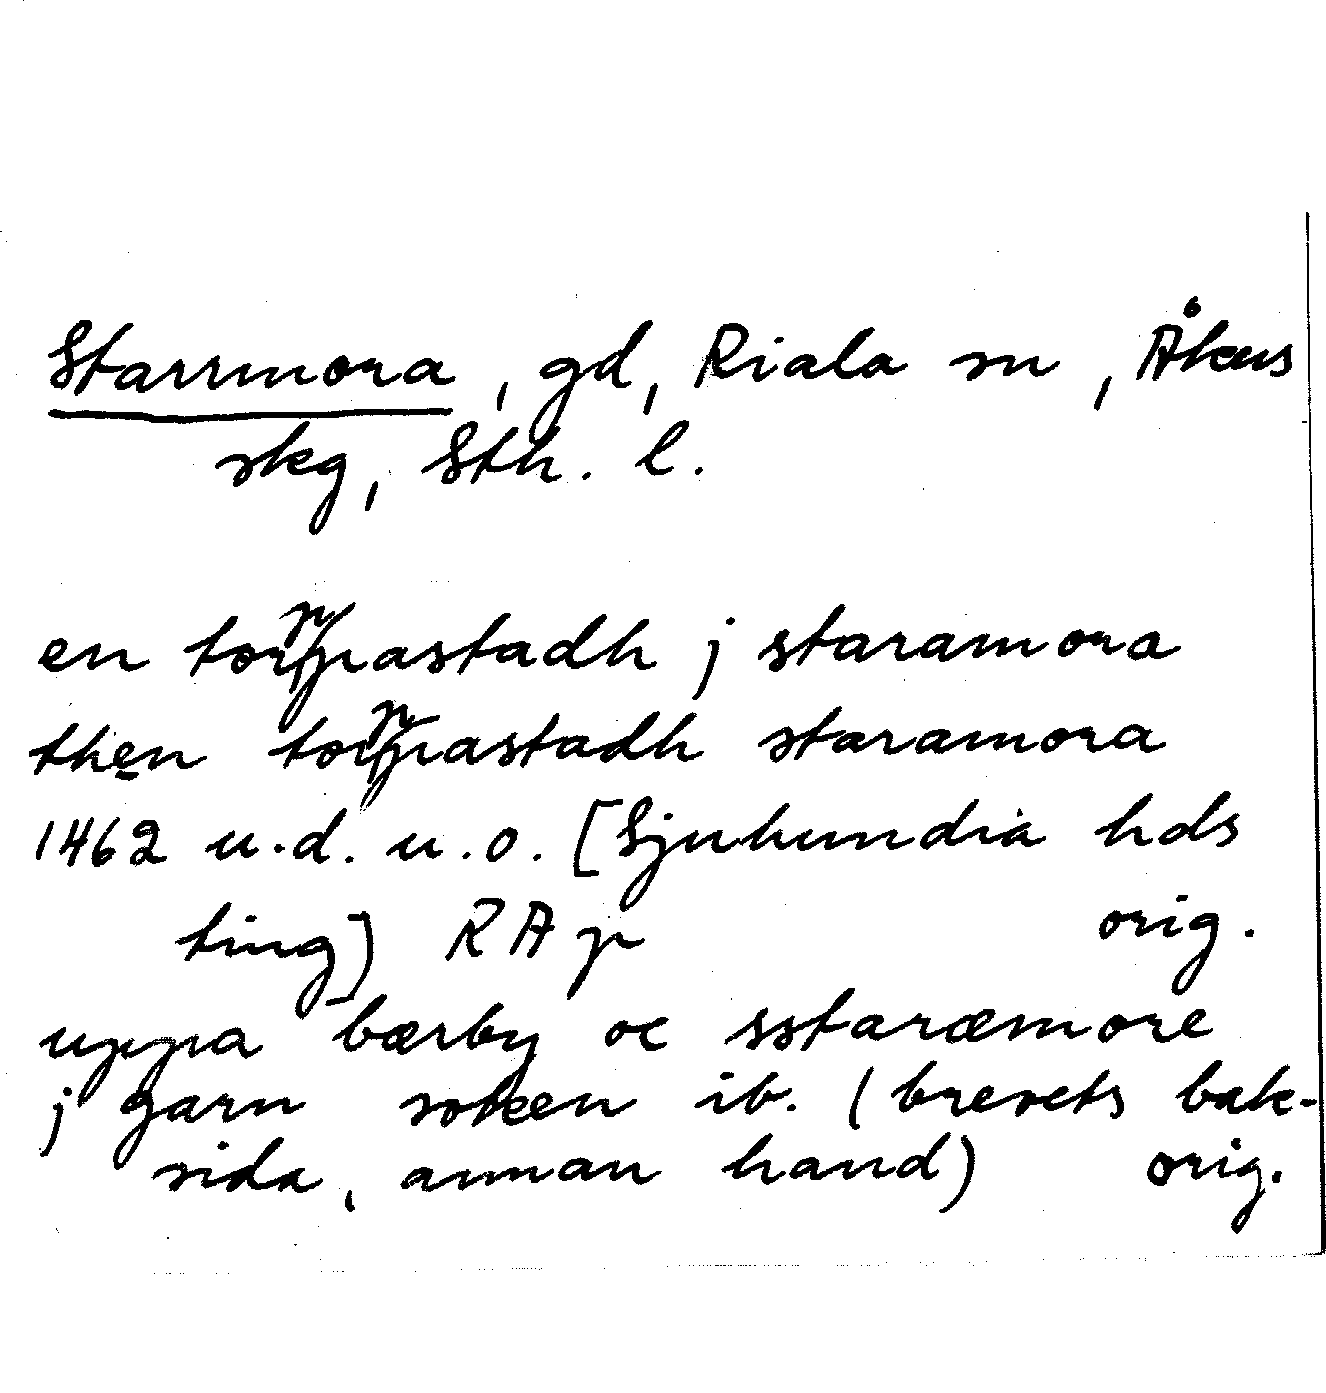 Starrmora, gd, Riala sn, Åkers
skg, Sth. l.
en torpastadh j staramora
then torpastadh staramora
1462 u.d. u.o. [Sjuhundra hds
ting] RAp orig.
uppa bærby oc sstaræmore
j garn soken ib. (brevets bak-
sida, annan hand) orig.